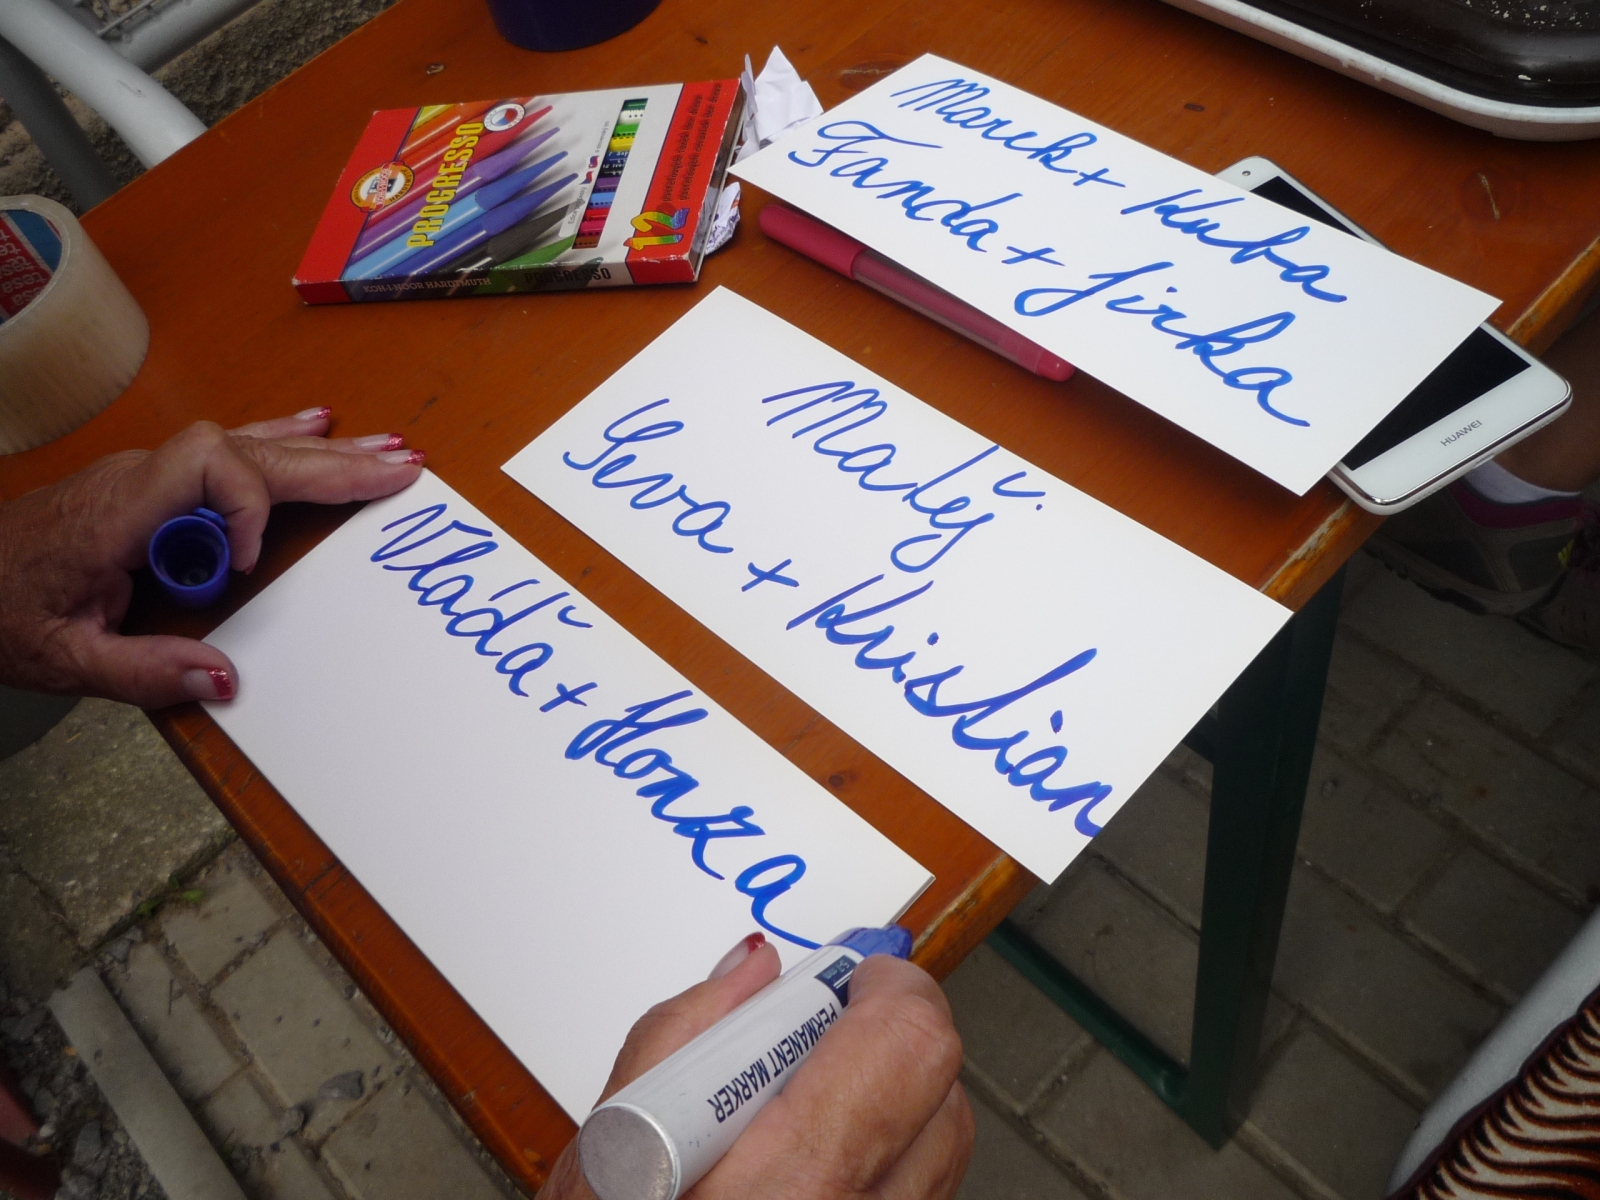 Marek + Kuba
Fanda + Jirka
Matěj
Seva + Kristian
Vláďa + Honza
PROGRESSO
KOH-I-NOOR HARDTMUTH
PROGRESSO
12
HUAWEI
PERMANENT MARKER
tesa
tesa